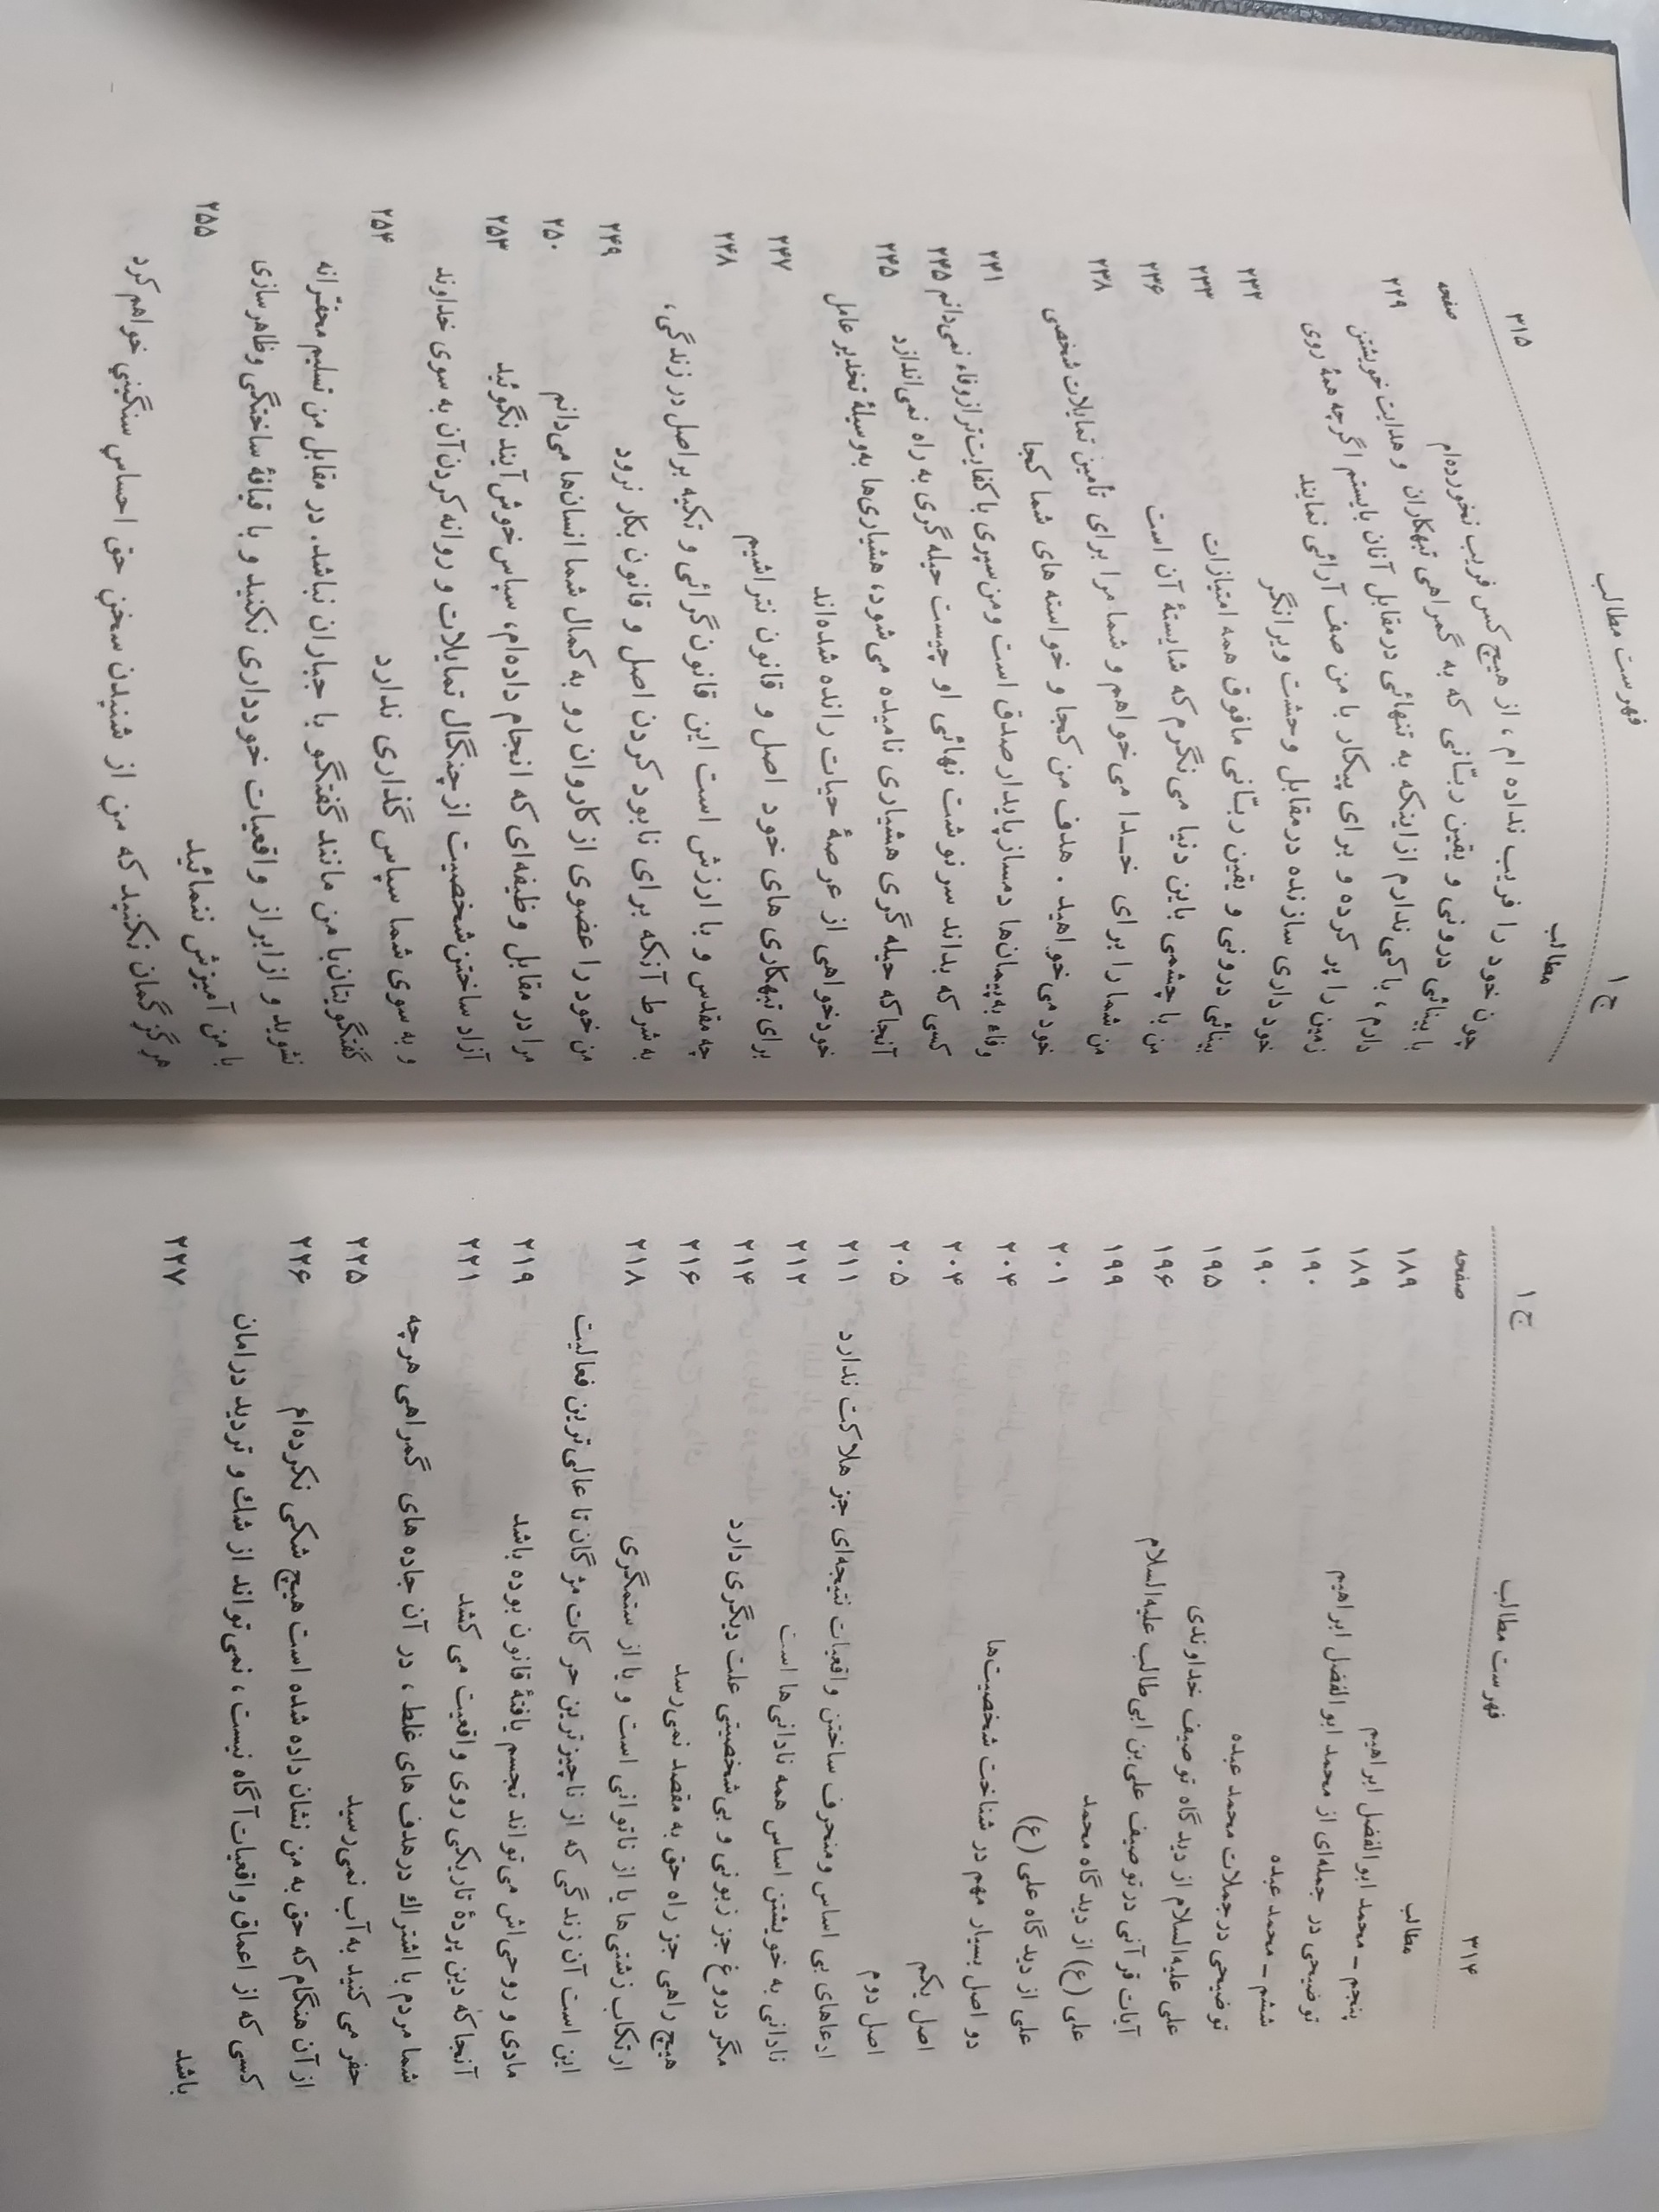 ۳۱۴
فهرست مطالب
ج ۱
مطالب
صفحه
پنجم ـ محمد ابوالفضل ابراهیم ۱۸۹
توضیحی در جمله‌ای از محمد ابوالفضل ابراهیم ۱۸۹
ششم ـ محمد عبده ۱۹۰
توضیحی در جملات محمد عبده ۱۹۰
علی علیه‌السلام از دیدگاه توصیف خداوندی ۱۹۵
آیات قرآنی در توصیف علی‌بن ابی‌طالب علیه‌السلام ۱۹۶
علی (ع) از دیدگاه محمد ۱۹۹
علی از دیدگاه علی (ع) ۲۰۱
دو اصل بسیار مهم در شناخت شخصیت‌ها ۲۰۴
اصل یکم ۲۰۴
اصل دوم ۲۰۵
ادعاهای بی اساس و منحرف ساختن واقعیات نتیجه‌ای جز هلاکت ندارد ۲۱۱
نادانی به خویشتن اساس همه نادانی‌ها است ۲۱۲
مگر دروغ جز زبونی و بی‌شخصیتی علت دیگری دارد ۲۱۴
هیچ راهی جز راه حق به مقصد نمی‌رسد ۲۱۶
ارتکاب زشتی‌ها یا از ناتوانی است و یا از ستمگری ۲۱۸
این است آن زندگی که از ناچیزترین حرکات مژگان تا عالی‌ترین فعالیت
مادی و روحی‌اش می‌تواند تجسم یافتهٔ قانون بوده باشد ۲۱۹
آنجا که دین پردهٔ تاریکی روی واقعیت می کشد ۲۲۱
شما مردم با اشتراك در هدف های غلط ، در آن جاده های گمراهی هر چه
حفر می کنید به آب نمی‌رسید ۲۲۵
از آن هنگام که حق به من نشان داده شده است هیچ شکی نکرده‌ام ۲۲۶
کسی که از اعماق واقعیات آگاه نیست ، نمی‌تواند از شك و تردید در امان
باشد ۲۲۷
ج ۱
فهرست مطالب
۳۱۵
مطالب
صفحه
چون خود را فریب نداده ام ، از هیچ کس فریب نخورده‌ام ۲۲۹
با بینائی درونی و یقین ربّانی که به گمراهی تبهکاران و هدایت خویشتن
دارم ، باکی ندارم از اینکه به تنهائی در مقابل آنان بایستم اگرچه همهٔ روی
زمین را پر کرده و برای پیکار با من صف آرائی نمایند ۲۳۲
خودداری سازنده در مقابل وحشت ویرانگر ۲۳۳
بینائی درونی و یقین ربّانی مافوق همه امتیازات ۲۳۶
من با چشمی باین دنیا می‌نگرم که شایستهٔ آن است ۲۳۸
من شما را برای خـدا می‌خواهم و شما مرا برای تأمین تمایلات شخصی
خود می‌خواهید . هدف من کجا و خواسته های شما کجا ۲۴۱
وفاء به‌پیمان‌ها دمساز پایدار صدق است و من سپری با کفایت‌تر از وفاء نمی‌دانم ۲۴۵
کسی که بداند سرنوشت نهائی او چیست حیله گری به راه نمی‌اندازد ۲۴۵
آنجا که حیله گری هشیاری نامیده می‌شود، هشیاری‌ها به‌وسیلهٔ تخدیر عامل
خودخواهی از عرصهٔ حیات رانده شده‌اند ۲۴۷
برای تبهکاری های خود اصل و قانون نتراشیم ۲۴۸
چه مقدس و با ارزش است این قانون گرائی و تکیه بر اصل در زندگی ،
به شرط آنکه برای نابود کردن اصل و قانون بکار نرود ۲۴۹
من خود را عضوی از کاروان رو به کمال شما انسان‌ها می‌دانم ۲۵۰
مرا در مقابل وظیفه‌ای که انجام داده‌ام، سپاس خوش آیند نگوئید ۲۵۳
آزاد ساختن شخصیت از چنگال تمایلات و روانه کردن آن به سوی خداوند
و به سوی شما سپاس گذاری ندارد ۲۵۴
گفتگویتان با من مانند گفتگو با جباران نباشد. در مقابل من تسلیم محقرانه
نشوید و از ابراز واقعیات خودداری نکنید و با قیافهٔ ساختگی و ظاهرسازی
با من آمیزش ننمائید ۲۵۵
هرگز گمان نکنید که من از شنیدن سخن حق احساس سنگینی خواهم کرد